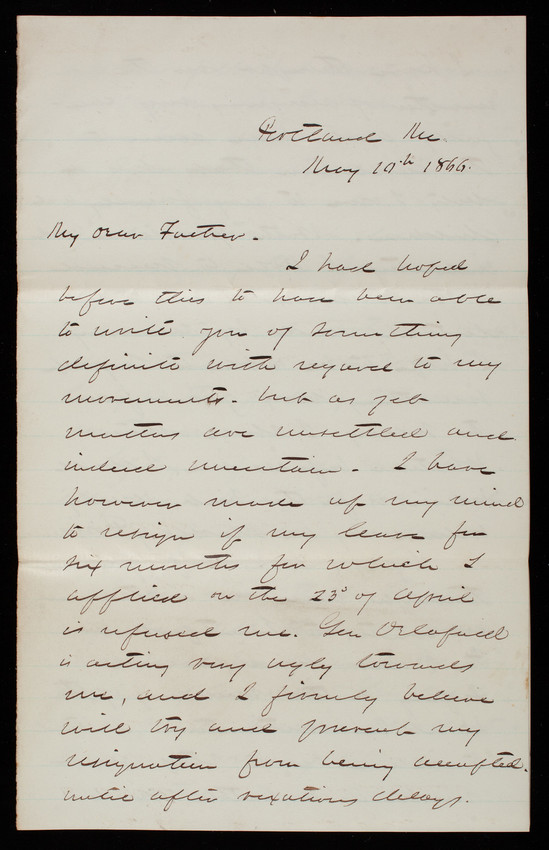 Portland Me.
May 10th 1866.
My dear Father.
I had hoped
before this to have been able
to write you of something
definite with regard to my
movements. but as yet
matters are unsettled and
indeed uncertain. I have
however made up my mind
to resign if my leave for
six months for which I
applied on the 23d of April
is refused me. Gen Delafield
is acting very ugly towards
me, and I firmly believe
will try and prevent my
resignation from being accepted.
until after vexatious delays.